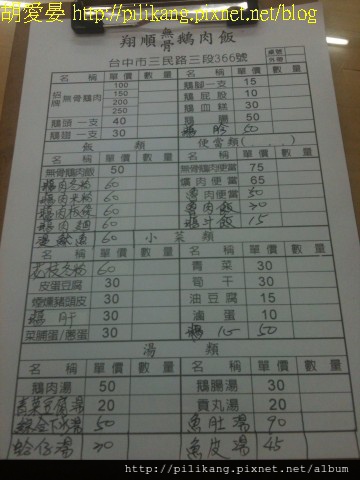 胡愛晏 / http://pilikang.pixnet.net/blog
翔順無骨鵝肉飯
台中市三民路三段366號
桌號
外帶
名稱 單價 數量 名稱 單價 數量
招牌無骨鵝肉 100 150 200 250
鵝腳一支 15
鵝屁股 10
鵝血糕 30
鵝頭一支 40 鵝腸 50
鵝翅一支 30 60
飯類 便當類( )
名稱 單價 數量 名稱 單價 數量
無骨鵝肉飯 50 無骨鵝肉便當 75
鵝肉冬粉 60 爌肉便當 65
鵝肉米粉 60 魯肉便當 50
鵝肉粄條 60 魯肉飯 30
鵝肉麵 60 15
60 小菜類
名稱 單價 數量 名稱 單價 數量
花枝冬粉 60 青菜 30
皮蛋豆腐 30 筍干 30
煙燻豬頭皮 30 油豆腐 15
鵝肝 30 滷蛋 10
菜脯蛋/蔥蛋 30 鵝心 50
湯類
名稱 單價 數量 名稱 單價 數量
鵝肉湯 50 鵝腸湯 30
青菜豆腐湯 20 貢丸湯 20
綜合下水湯 50 魚肚湯 90
蛤仔湯 30 魚皮湯 45
http://pilikang.pixnet.net/album